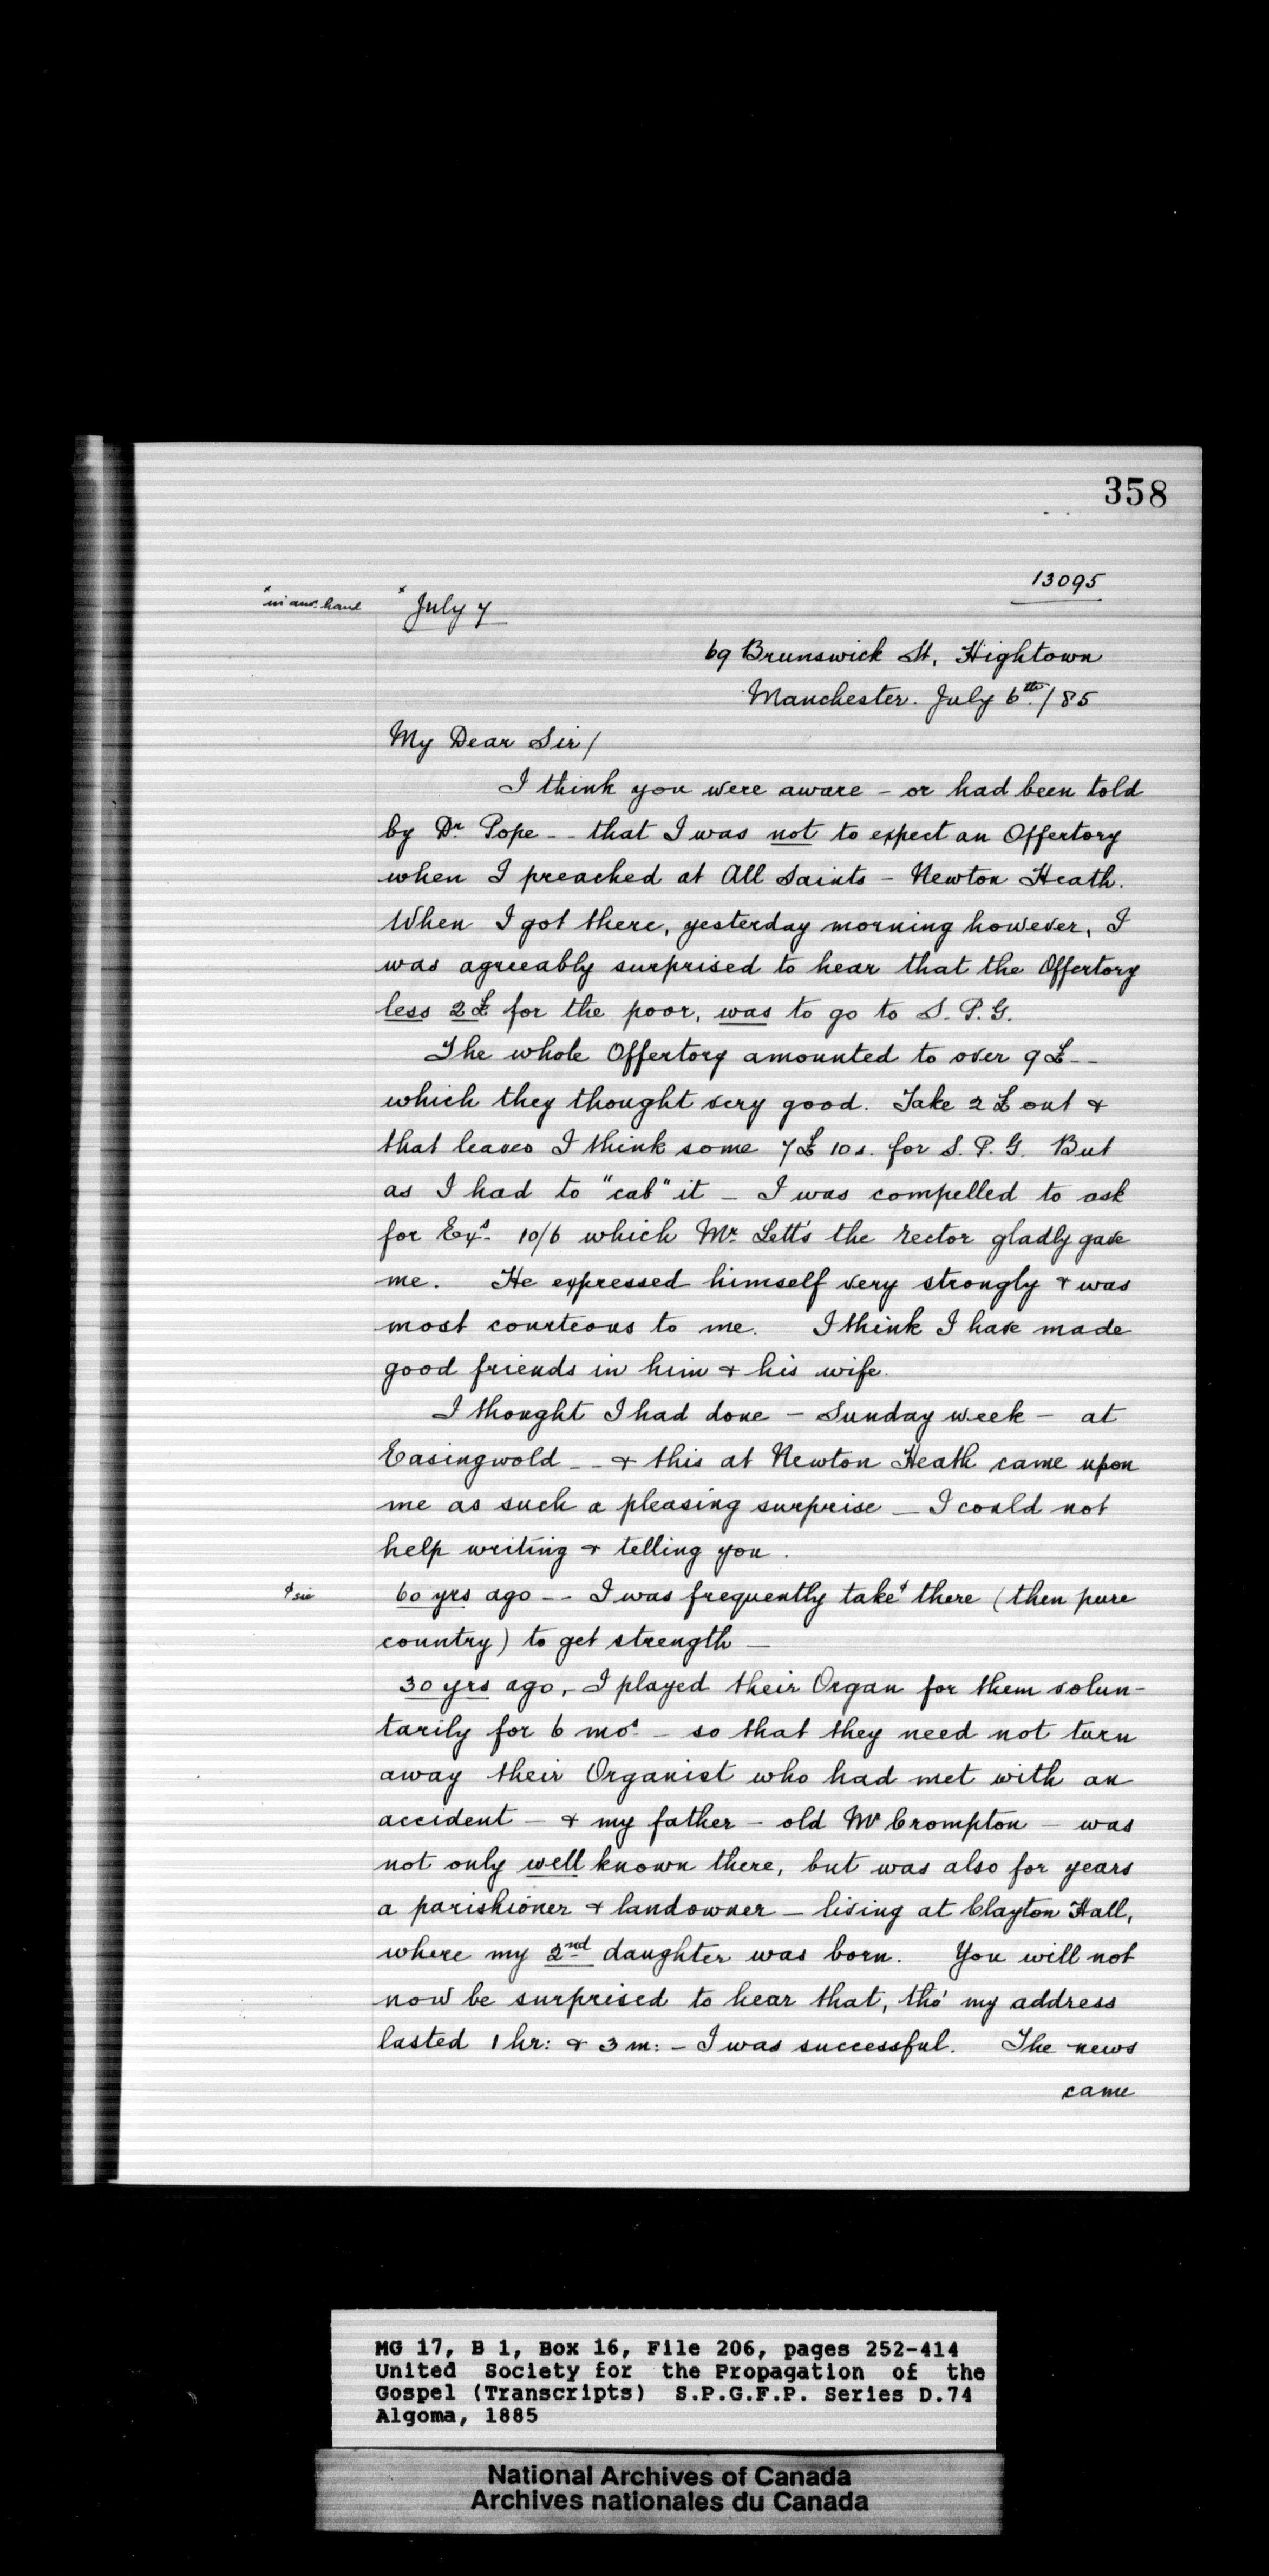 358
13095
x in ano: hand
x July 7
69 Brunswick St, Hightown
Manchester. July 6th./85
My Dear Sir/
I think you were aware - or had been told
by Dr Pope -- that I was not to expect an Offertory
when I preached at All Saints - Newton Heath.
When I got there, yesterday morning however, I
was agreeably surprised to hear that the Offertory
less 2£ for the poor, was to go to S. P. G.
The whole Offertory amounted to over 9£ --
which they thought very good. Take 2£ out &
that leaves I think some 7£ 10s. for S. P. G. But
as I had to "cab" it - I was compelled to ask
for Exs. 10/6 which Mr. Lett's the rector gladly gave
me. He expressed himself very strongly & was
most courteous to me. I think I have made
good friends in him & his wife.
I thought I had done - Sunday week - at
Easingwold -- & this at Newton Heath came upon
me as such a pleasing surprise - I could not
help writing & telling you.
ɸ sic
60 yrs ago -- I was frequently takeɸ there (then pure
country) to get strength -
30 yrs ago, I played their Organ for them volun-
tarily for 6 mos - so that they need not turn
away their Organist who had met with an
accident - & my father - old Mr Crompton - was
not only well known there, but was also for years
a parishioner & landowner - living at Clayton Hall,
where my 2nd daughter was born. You will not
now be surprised to hear that, tho' my address
lasted 1 hr: & 3 m: - I was successful. The news
came
MG 17, B 1, Box 16, File 206, pages 252-414
United Society for the Propagation of the
Gospel (Transcripts) S.P.G.F.P. Series D.74
Algoma, 1885
National Archives of Canada
Archives nationales du Canada